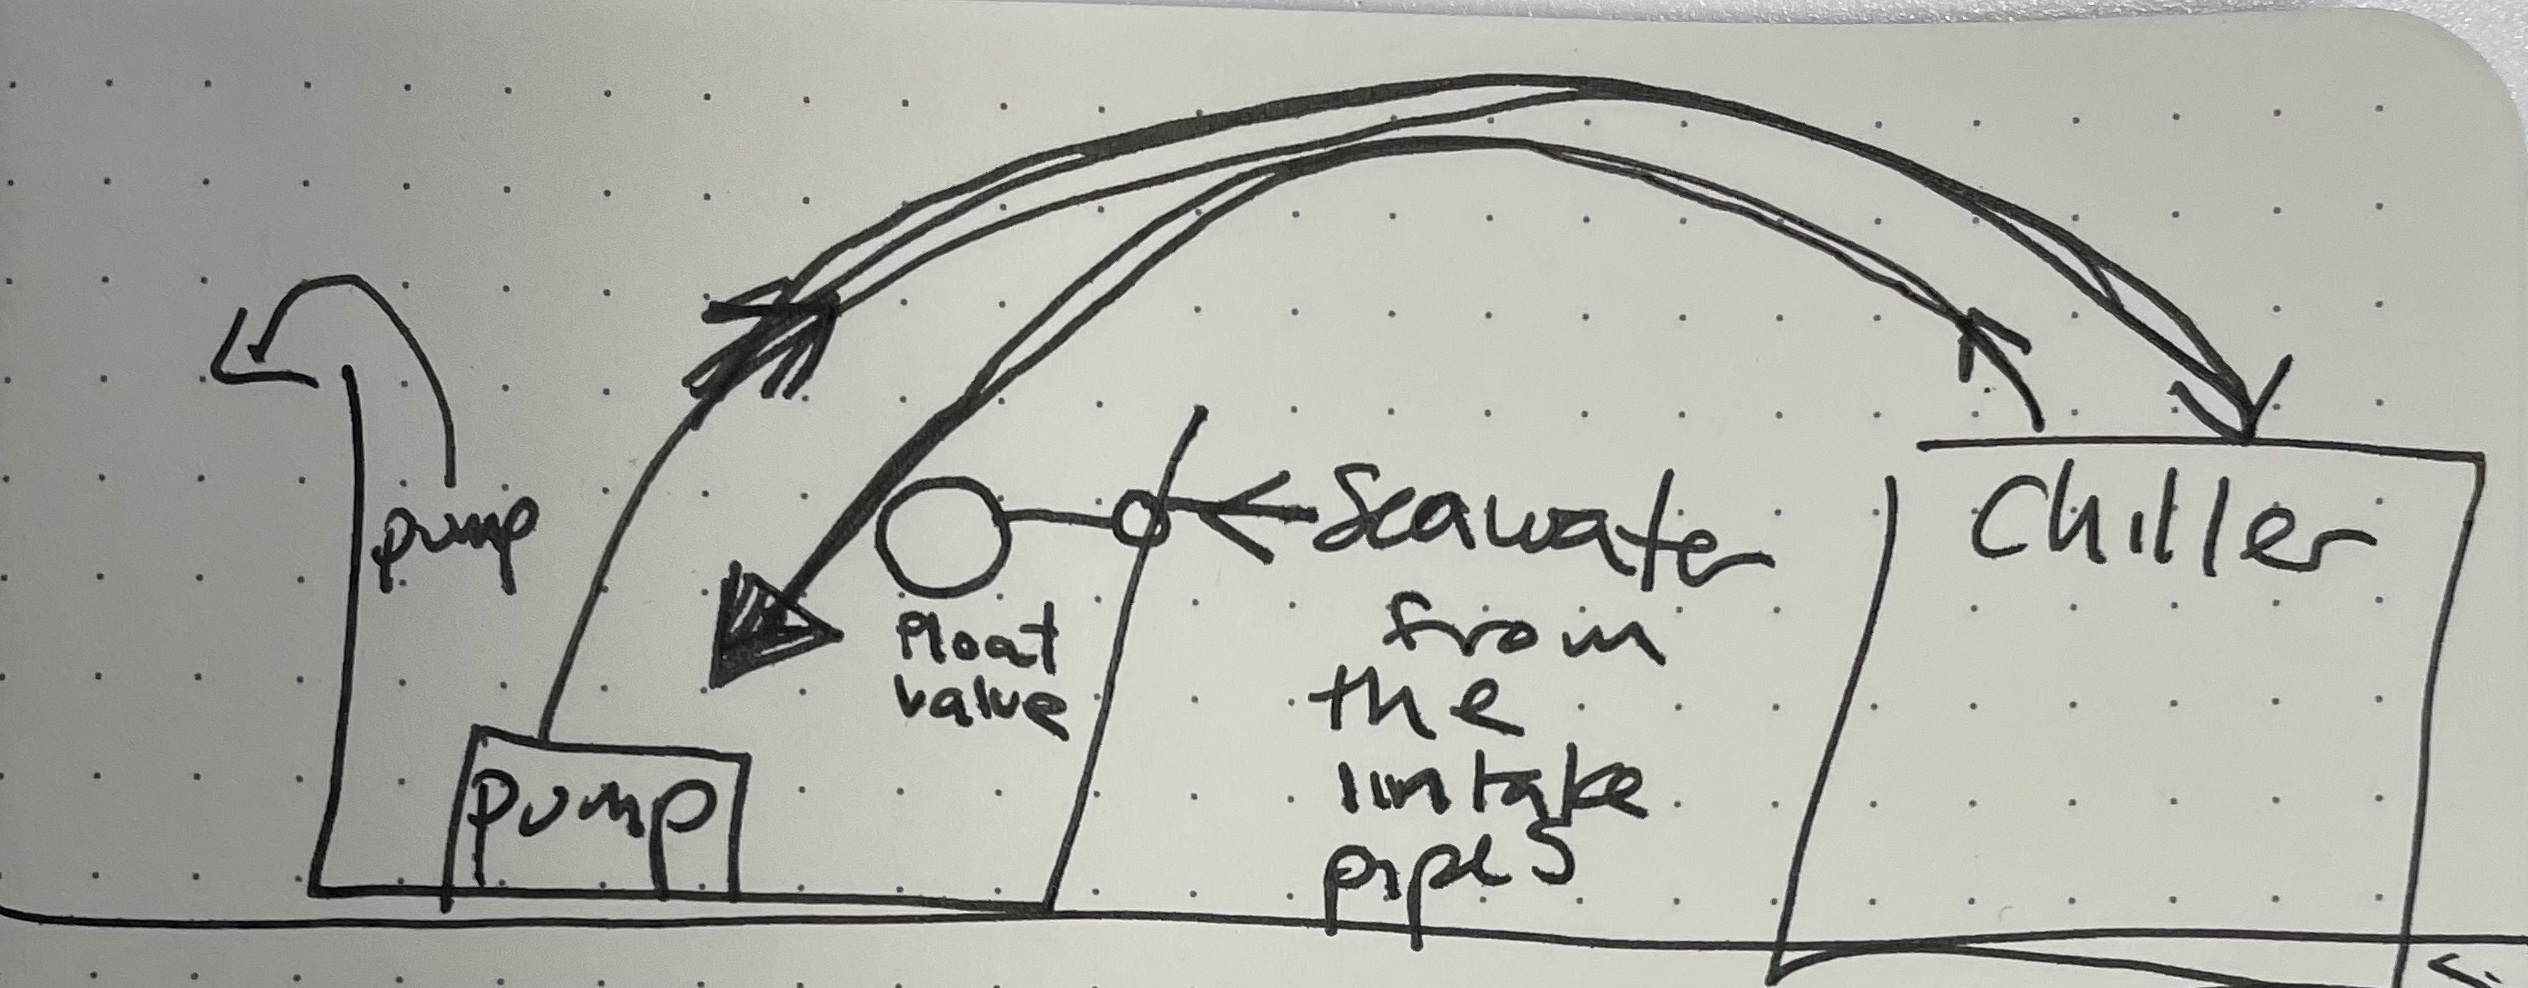 pump
Float
valve
pump
Seawater
from
the
iintake
pipes
Chiller